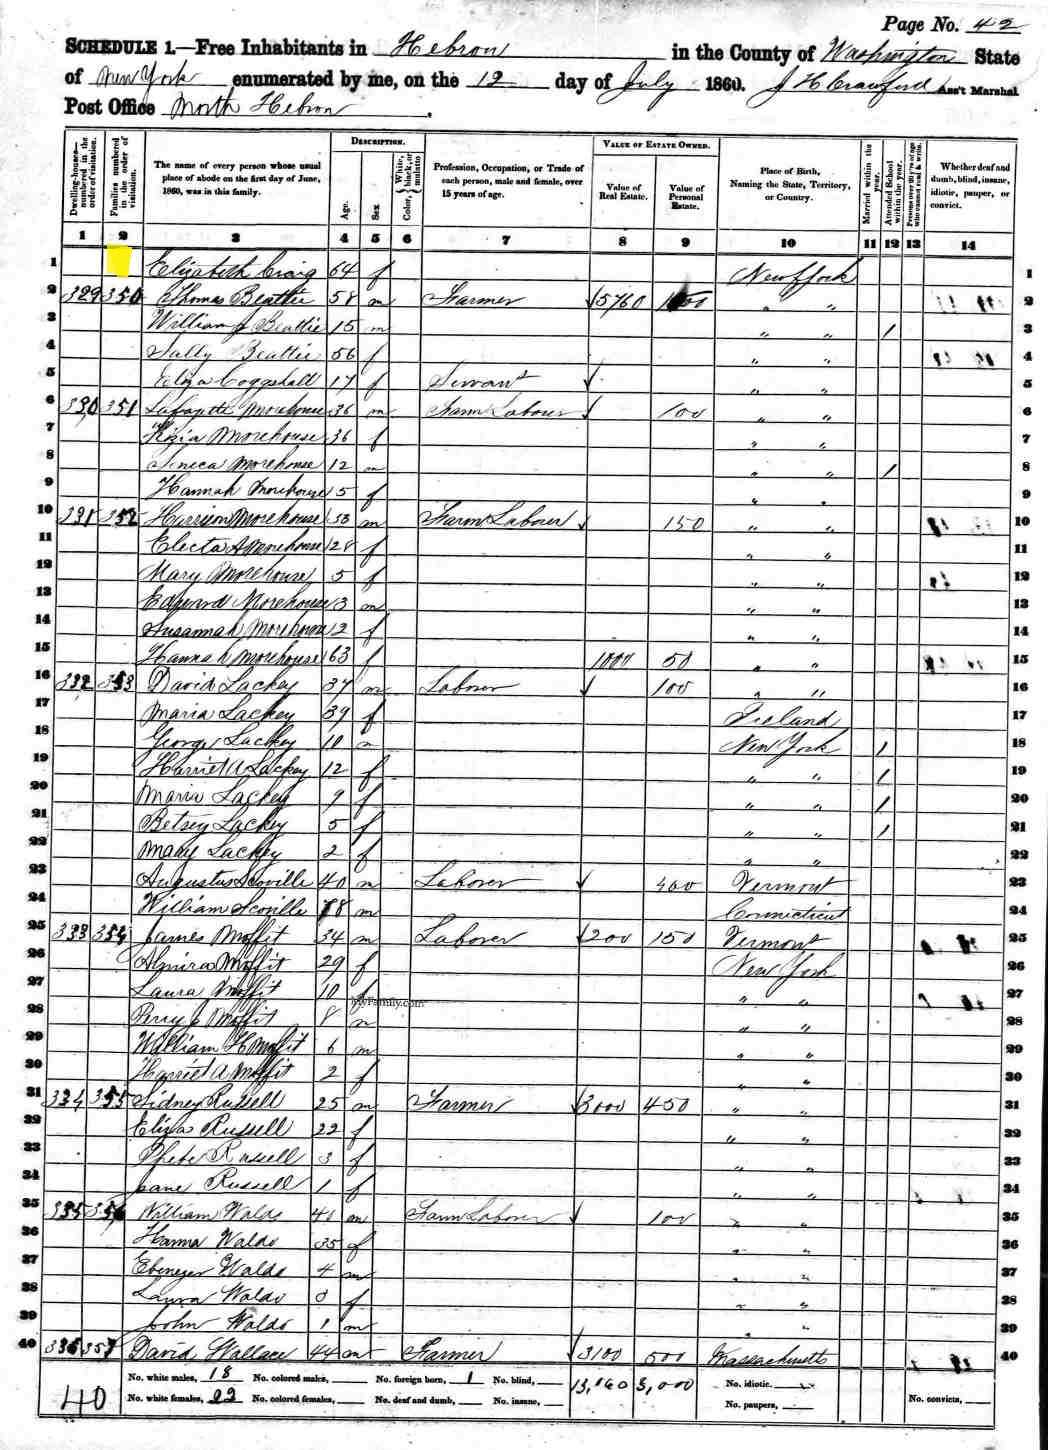 Page No. 42
SCHEDULE 1.—Free Inhabitants in Hebron in the County of Washington State
of New York enumerated by me, on the 12 day of July 1860. J H Crawford Ass't Marshal
Post Office North Hebron.
Dwelling-houses—numbered in the order of visitation. Families numbered in the order of visitation. The name of every person whose usual place of abode on the first day of June, 1860, was in this family. DESCRIPTION. Age. Sex. Color, White, black, or mulatto Profession, Occupation, or Trade of each person, male and female, over 15 years of age. VALUE OF ESTATE OWNED. Value of Real Estate. Value of Personal Estate. Place of Birth, Naming the State, Territory, or Country. Married within the year. Attended School within the year. Persons over 20 y'rs of age who cannot read & write. Whether deaf and dumb, blind, insane, idiotic, pauper, or convict.
1 2 3 4 5 6 7 8 9 10 11 12 13 14
1 Elizabeth Craig 64 f New York 1
2 329 350 Thomas Beattie 58 m Farmer 5760 " " 2
3 William J Beattie 15 m " " 1 3
4 Sally Beattie 56 f " " 4
5 Eliza Coggshall 17 f Servant " " 5
6 330 351 Lafayette Morehouse 36 m Farm Laborer 100 " " 6
7 Morehouse 36 f " " 7
8 Seneca Morehouse 12 m " " 1 8
9 Hannah Morehouse 5 f " " 9
10 331 352 Harrison Morehouse 33 m Farm Laborer 150 " " 10
11 Electa A Morehouse 28 f " " 11
12 Mary Morehouse 5 f " " 12
13 Edward Morehouse 3 m " " 13
14 Susannah Morehouse 2 f " " 14
15 Hannah Morehouse 63 f 1000 50 " " 15
16 332 353 David Lackey 37 m Laborer 100 " " 16
17 Maria Lackey 39 f Ireland 17
18 George Lackey 10 m New York 1 18
19 Harriet A Lackey 12 f " " 1 19
20 Maria Lackey 9 f " " 1 20
21 Betsey Lackey 5 f " " 1 21
22 Mary Lackey 2 f " " 22
23 Augustus Scoville 40 m Laborer 400 Vermont 23
24 William Scoville 78 m Connecticut 24
25 333 354 James Moffit 34 m Laborer 200 150 Vermont 25
26 Almira Moffit 29 f New York 26
27 Laura Moffit 10 f " " 27
MyFamily.com
28 Perry J Moffit 8 m " " 28
29 William H Moffit 6 m " " 29
30 Harriet A Moffit 2 f " " 30
31 334 355 Sidney Russell 25 m Farmer 3000 450 " " 31
32 Eliza Russell 22 f " " 32
33 Phebe Russell 3 f " " 33
34 Jane Russell 1 f " " 34
35 335 356 William Waldo 41 m Farm Laborer 100 " " 35
36 Hanna Waldo 35 f " " 36
37 Ebenezer Waldo 4 m " " 37
38 Laura Waldo 3 f " " 38
39 John Waldo 1 m " " 39
40 336 357 David Wallace 44 m Farmer 3100 500 Massachusetts 40
No. white males, 18 No. colored males, No. foreign born, 1 No. blind, 13,060 3,000 No. idiotic.
40 No. white females, 22 No. colored females, No. deaf and dumb, No. insane, No. paupers, No. convicts,